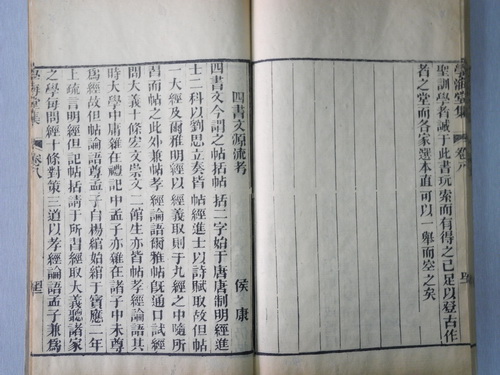 學海堂集 卷八
聖訓學者誠于此書玩索而有得之已足以登古作
者之堂而各家選本直可以一舉而空之矣
四書文源流考 侯康
四書文今謂之帖括帖括二字始于唐唐制明經進
士二科以劉思立奏皆帖經進士以詩賦取故但帖
一大經及爾雅明經以經義取則于九經之中隨所
習而帖之此外兼帖孝經論語爾雅帖旣通口試經
問大義十條宏文崇文二館生亦皆帖孝經論語其
時大學中庸雜在禮記中孟子亦雜在諸子中未尊
爲經故但帖論語尊孟子自楊綰始綰于寶應二年
上疏言明經但記帖括請于所習經取大義聽諸家
之學每問經十條對策三道以孝經論語孟子兼爲
學海堂集 卷八